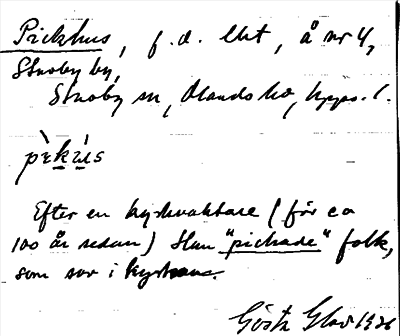 Pickhus, f.d. lht, å nr 4,
Stuoby by,
Stuoby sn, Olands hd, Upps. l.
pὲkὺs
Efter en kyrkvaktare (för ca
100 år sedan) Han "pickade" folk,
som sov i kyrkan.
Gösta 1926